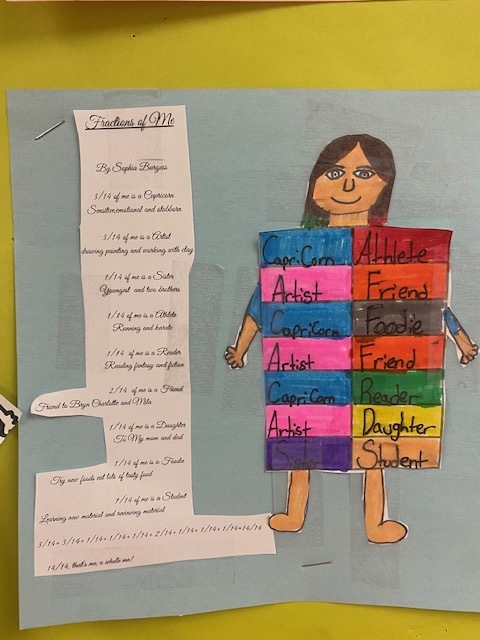 Fractions of Me
By Sophia Burgess
3/14 of me is a Capricorn
Sensitive,emotional and stubborn
3/14 of me is a Artist
drawing painting and working with clay
1/14 of me is a Sister
Youngest and two brothers
1/14 of me is a Athlete
Running and karate
1/14 of me is a Reader
Reading fantasy and fiction
2/14 of me is a Friend
Friend to Bryn Charlotte and Mila
1/14 of me is a Daughter
To My mom and dad
1/14 of me is a Foodie
Try new foods eat lots of tasty food
1/14 of me is a Student
Learning new material and reviewing material
3/14+ 3/14+ 1/14+ 1/14+ 1/14+ 2/14+ 1/14+ 1/14+ 1/14=14/14
14/14, that's me, a whole me!
CapriCorn Athlete
Artist Friend
CapriCorn Foodie
Artist Friend
CapriCorn Reader
Artist Daughter
Sister Student